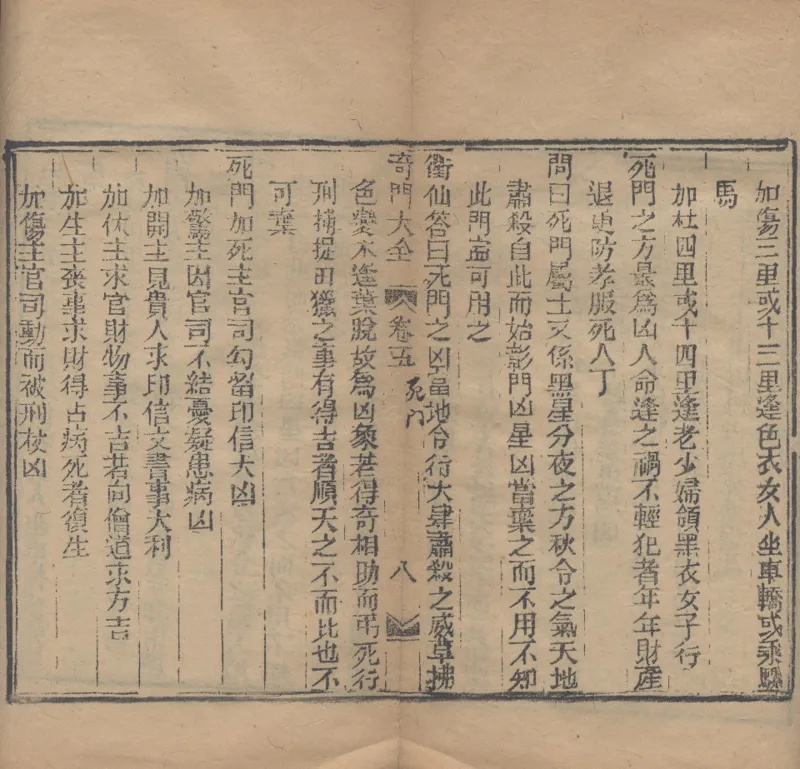 加傷三里或十三里逢色衣女人坐車轎或乘騾
馬
加杜四里或十四里逢老少婦領黑衣女子行
死門之方最爲凶人命逢之禍不輕犯者年年財產
退更防孝服死人丁
問曰死門屬土又係黑星分夜之方秋令之氣天地
肅殺自此而始彰門凶星凶當棄之而不用不知
此門盍可用之
衢仙答曰死門之凶當地令行大肆肅殺之威草拂
奇門大全 卷五 死門 八
色變木逢葉脫故爲凶象若得奇相助而弔死行
刑捕捉田獵之事有得吉者順天之不而比也不
可棄
死門加死主官司勾留印信大凶
加驚主因官司不結憂疑患病凶
加開主見貴人求印信文書事大利
加休主求官財物事不吉若向僧道求方吉
加生主喪事求財得占病死者復生
加傷主官司動而被刑杖凶